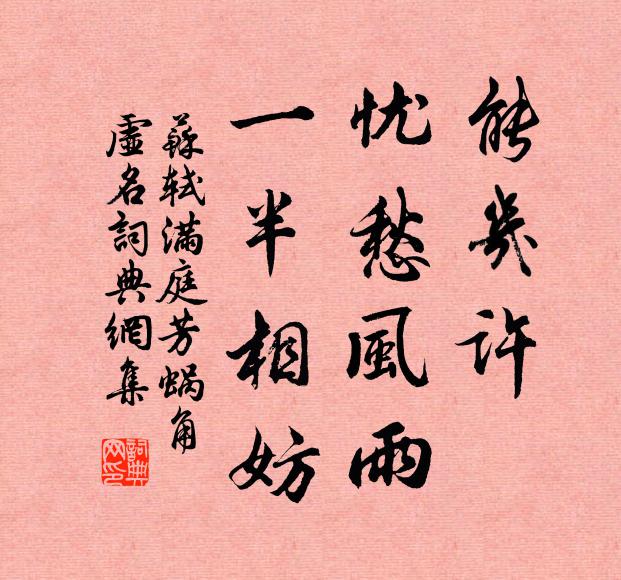 能幾許
忧愁風雨
一半相妨
蘇轼满庭芳蜗角
虛名詞典網集
詞典
网印